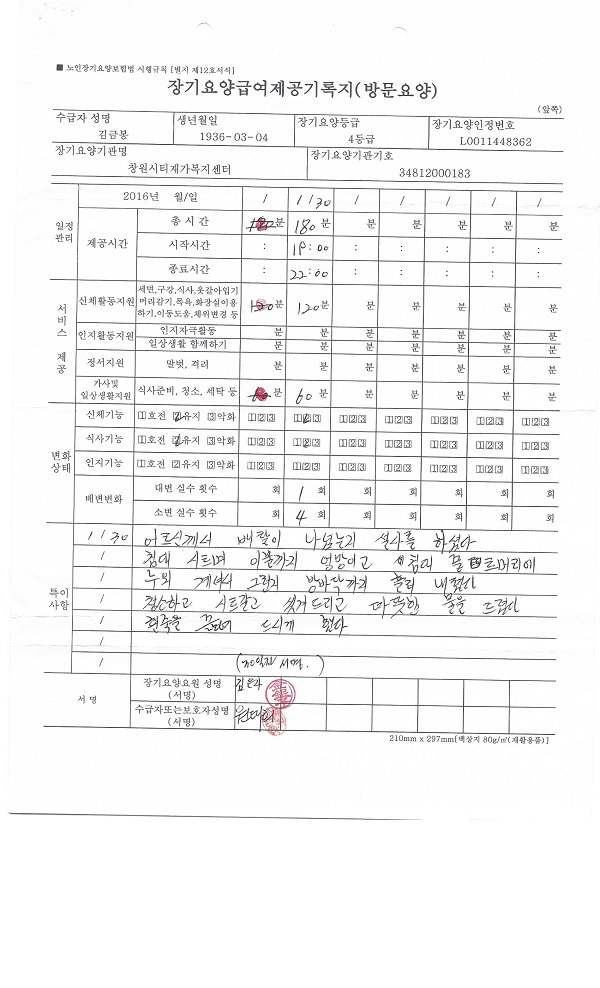 ■ 노인장기요양보험법 시행규칙 [별지 제12호서식]
장기요양급여제공기록지(방문요양)
(앞쪽)
수급자 성명 생년월일 장기요양등급 장기요양인정번호
김금봉 1936-03-04 4등급 L0011448362
장기요양기관명 장기요양기관기호
창원시티재가복지센터 34812000183
일정관리 2016년 월/일 / 11/30 / / / / /
제공시간 총 시간 180분 180분 분 분 분 분 분
시작시간 : 19:00 : : : : :
종료시간 : 22:00 : : : : :
서비스 제공 신체활동지원 세면,구강,식사,옷갈아입기
머리감기,목욕,화장실이용
하기,이동도움,체위변경 등 120분 120분 분 분 분 분 분
인지활동지원 인지자극활동 분 분 분 분 분 분 분
일상생활 함께하기 분 분 분 분 분 분 분
정서지원 말벗, 격려 분 분 분 분 분 분 분
가사및
일상생활지원 식사준비, 청소, 세탁 등 분 60분 분 분 분 분 분
변화상태 신체기능 1호전 2유지 3악화 123 123 123 123 123 123
식사기능 1호전 2유지 3악화 123 123 123 123 123 123
인지기능 1호전 2유지 3악화 123 123 123 123 123 123
배변변화 대변 실수 횟수 회 1회 회 회 회 회 회
소변 실수 횟수 회 4회 회 회 회 회 회
특이사항 11/30 어르신께서 배탈이 나셨는지 설사를 하셨다
/ 침대 시트며 이불까지 엉망이고 침대 머리에
/ 누워 계셔서 방바닥까지 흘러
/ 청소하고 시트갈고 씻겨드리고 따뜻한 물을 드렸다
/ 흰죽을 드시게 했다
/
/ (30일자 서명.)
서 명 장기요양요원 성명
(서명)
수급자또는보호자성명
(서명)
210mm x 297mm[백상지 80g/㎡(재활용품)]